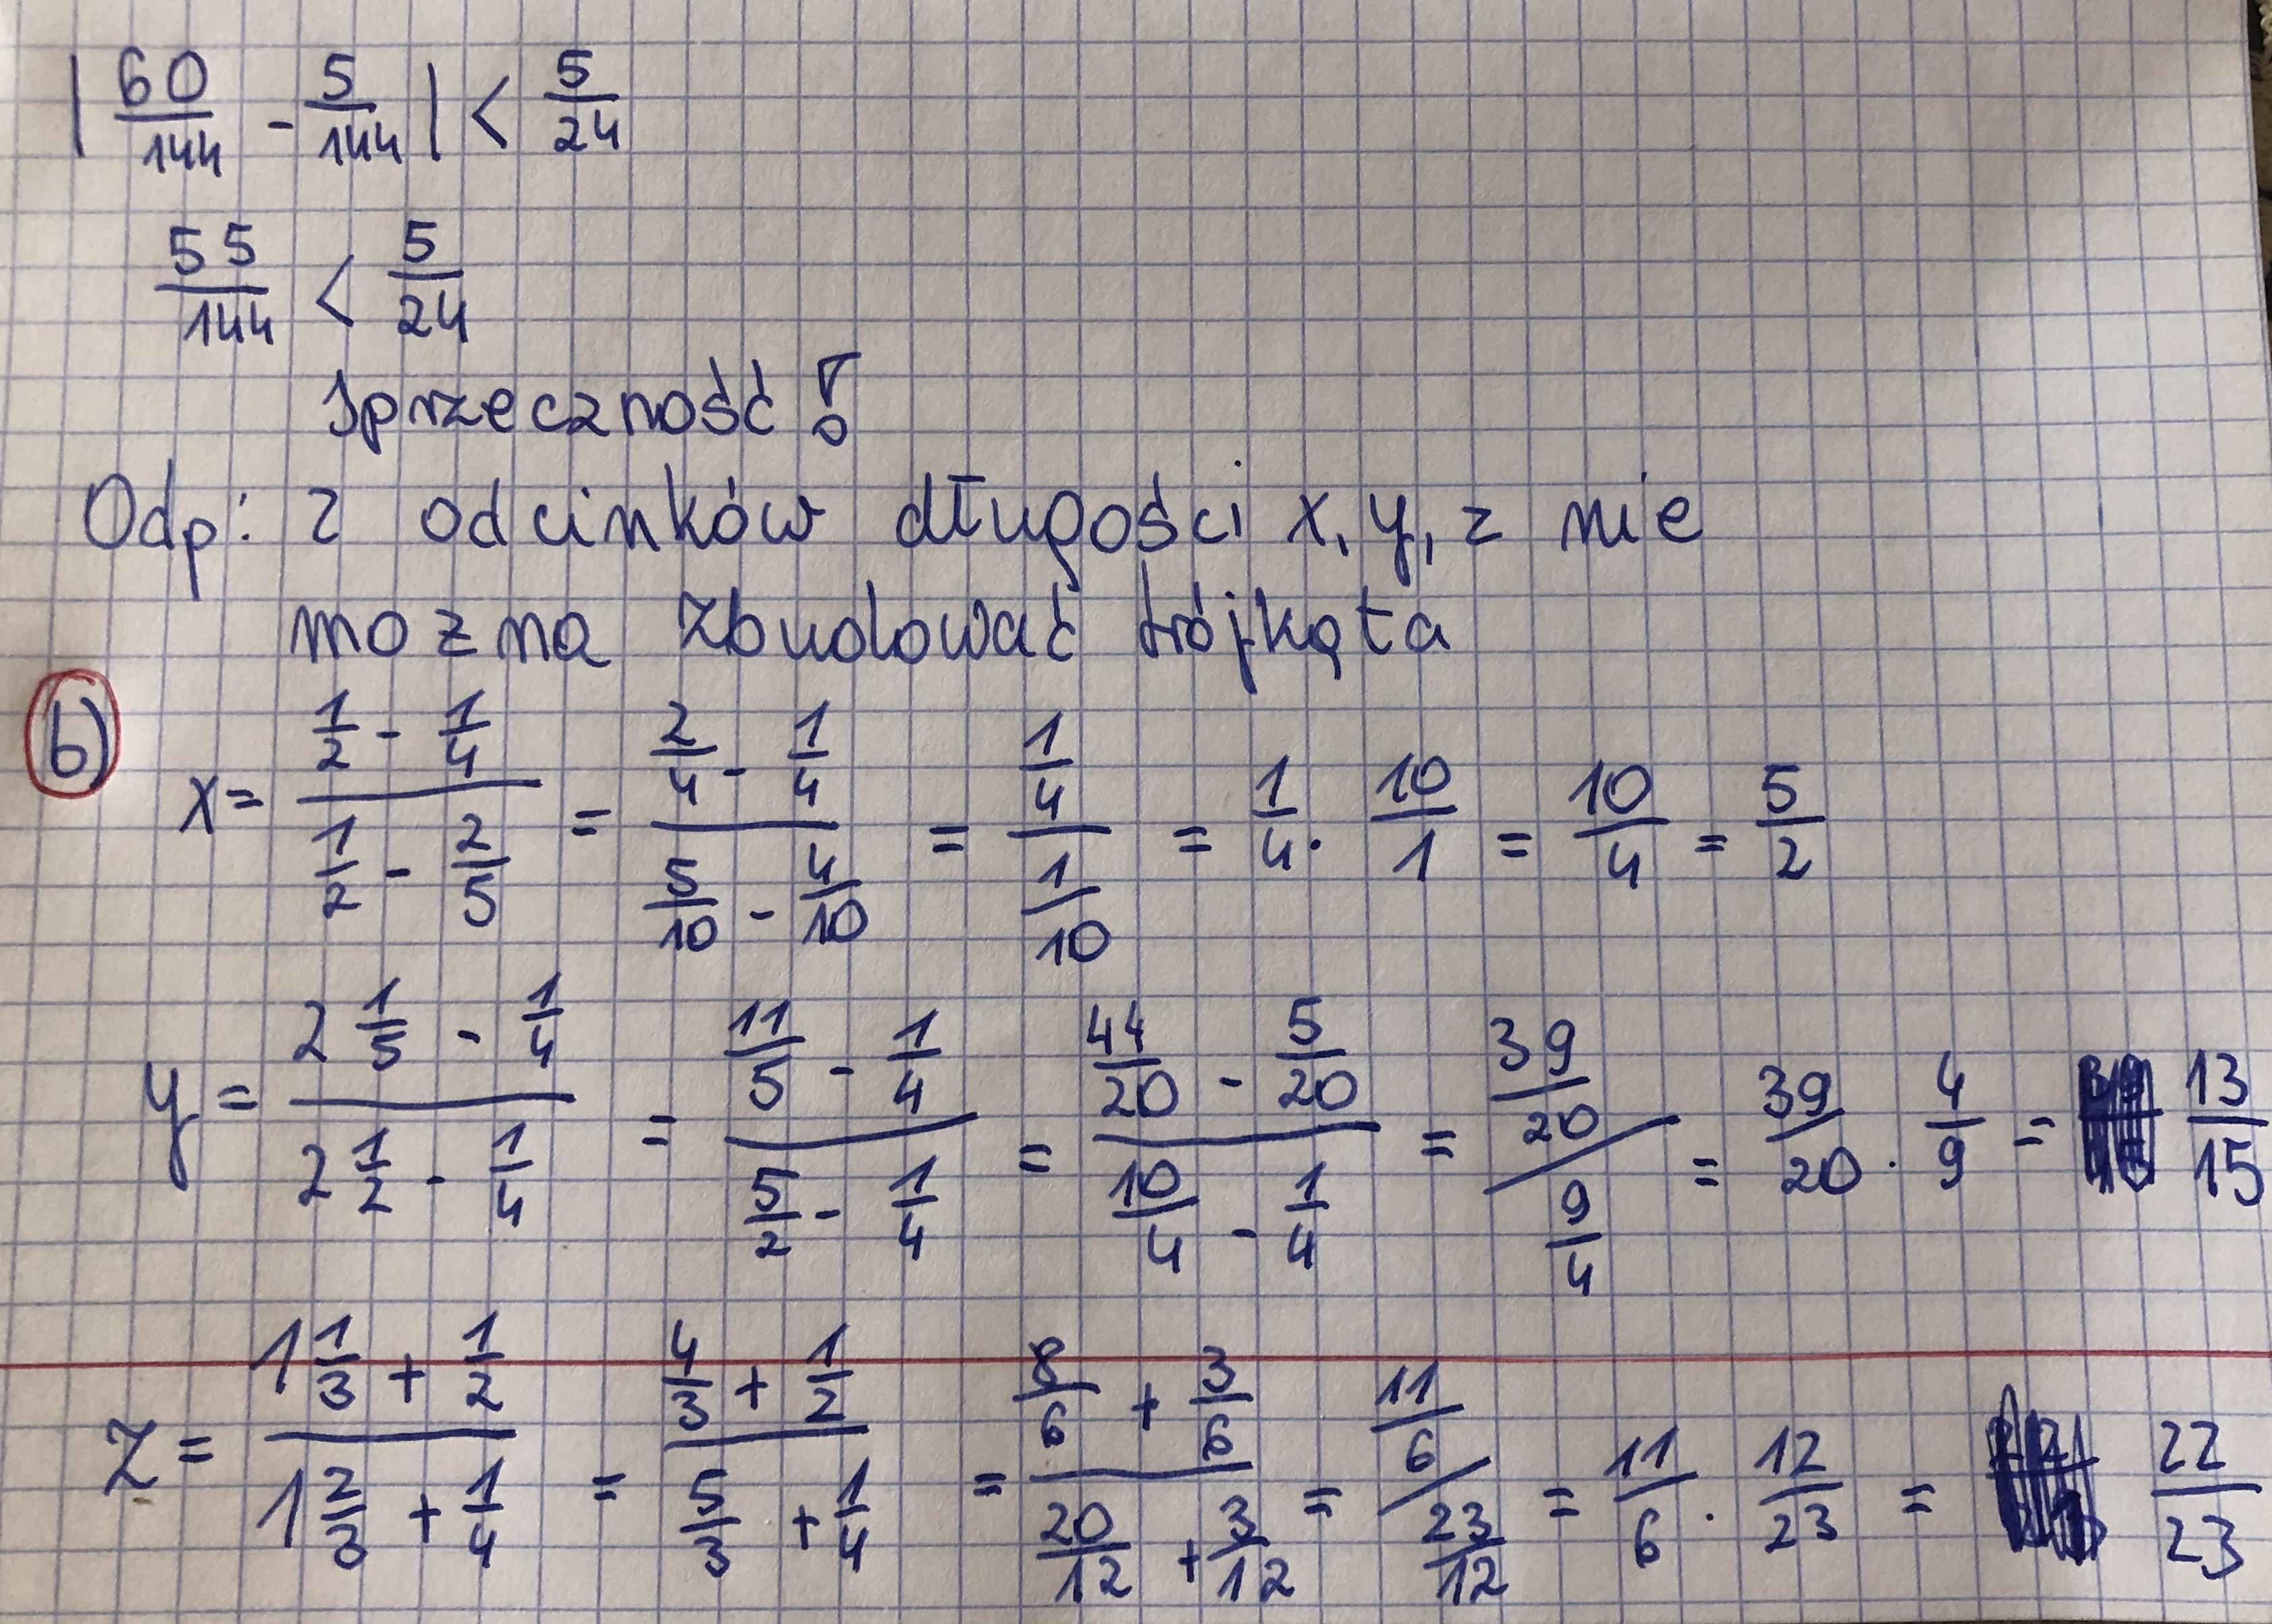 | 60/144 - 5/144 | < 5/24
55/144 < 5/24
Sprzeczność!
Odp: z odcinków długości x, y, z nie
mozna zbudować trójkąta
b)
x = (1/2 - 1/4)/(1/2 - 2/5) = (2/4 - 1/4)/(5/10 - 4/10) = (1/4)/(1/10) = 1/4 · 10/1 = 10/4 = 5/2
y = (2 1/5 - 1/4)/(2 1/2 - 1/4) = (11/5 - 1/4)/(5/2 - 1/4) = (44/20 - 5/20)/(10/4 - 1/4) = (39/20)/(9/4) = 39/20 · 4/9 = 13/15
z = (1 1/3 + 1/2)/(1 2/3 + 1/4) = (4/3 + 1/2)/(5/3 + 1/4) = (8/6 + 3/6)/(20/12 + 3/12) = (11/6)/(23/12) = 11/6 · 12/23 = 22/23